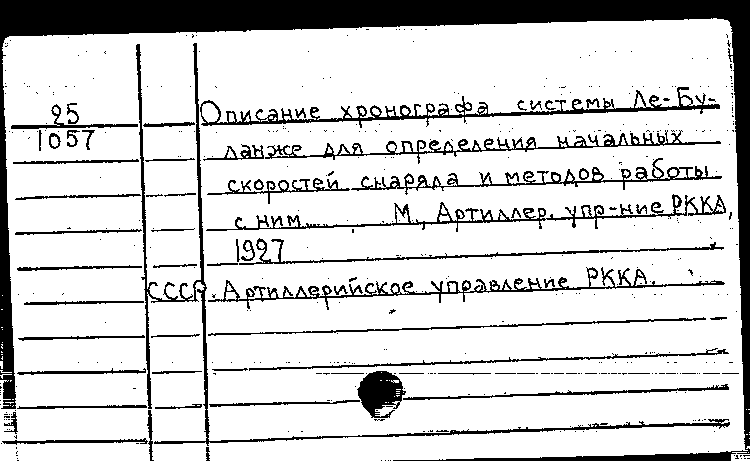 25
1057
Описание хронографа системы Ле-Бу-
ланже для определения начальных
скоростей снаряда и методов работы
с ним М., Артиллер. упр-ние РККА,
1927
СССР. Артиллерийское управление РККА.